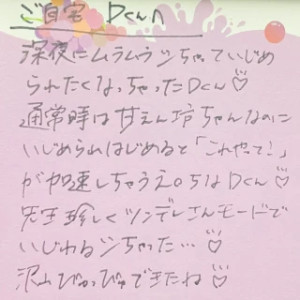 ご自宅 Dくんへ
深夜にムラムラしちゃっていじめ
られたくなっちゃったDくん♡
通常時は甘えん坊ちゃんなのに
いじめられはじめると「これやって!」
が加速しちゃうえ○ちなDくん♡
先生珍しくツンデレさんモードで
いじわるしちゃった…♡
沢山ぴゅっぴゅできたね♡